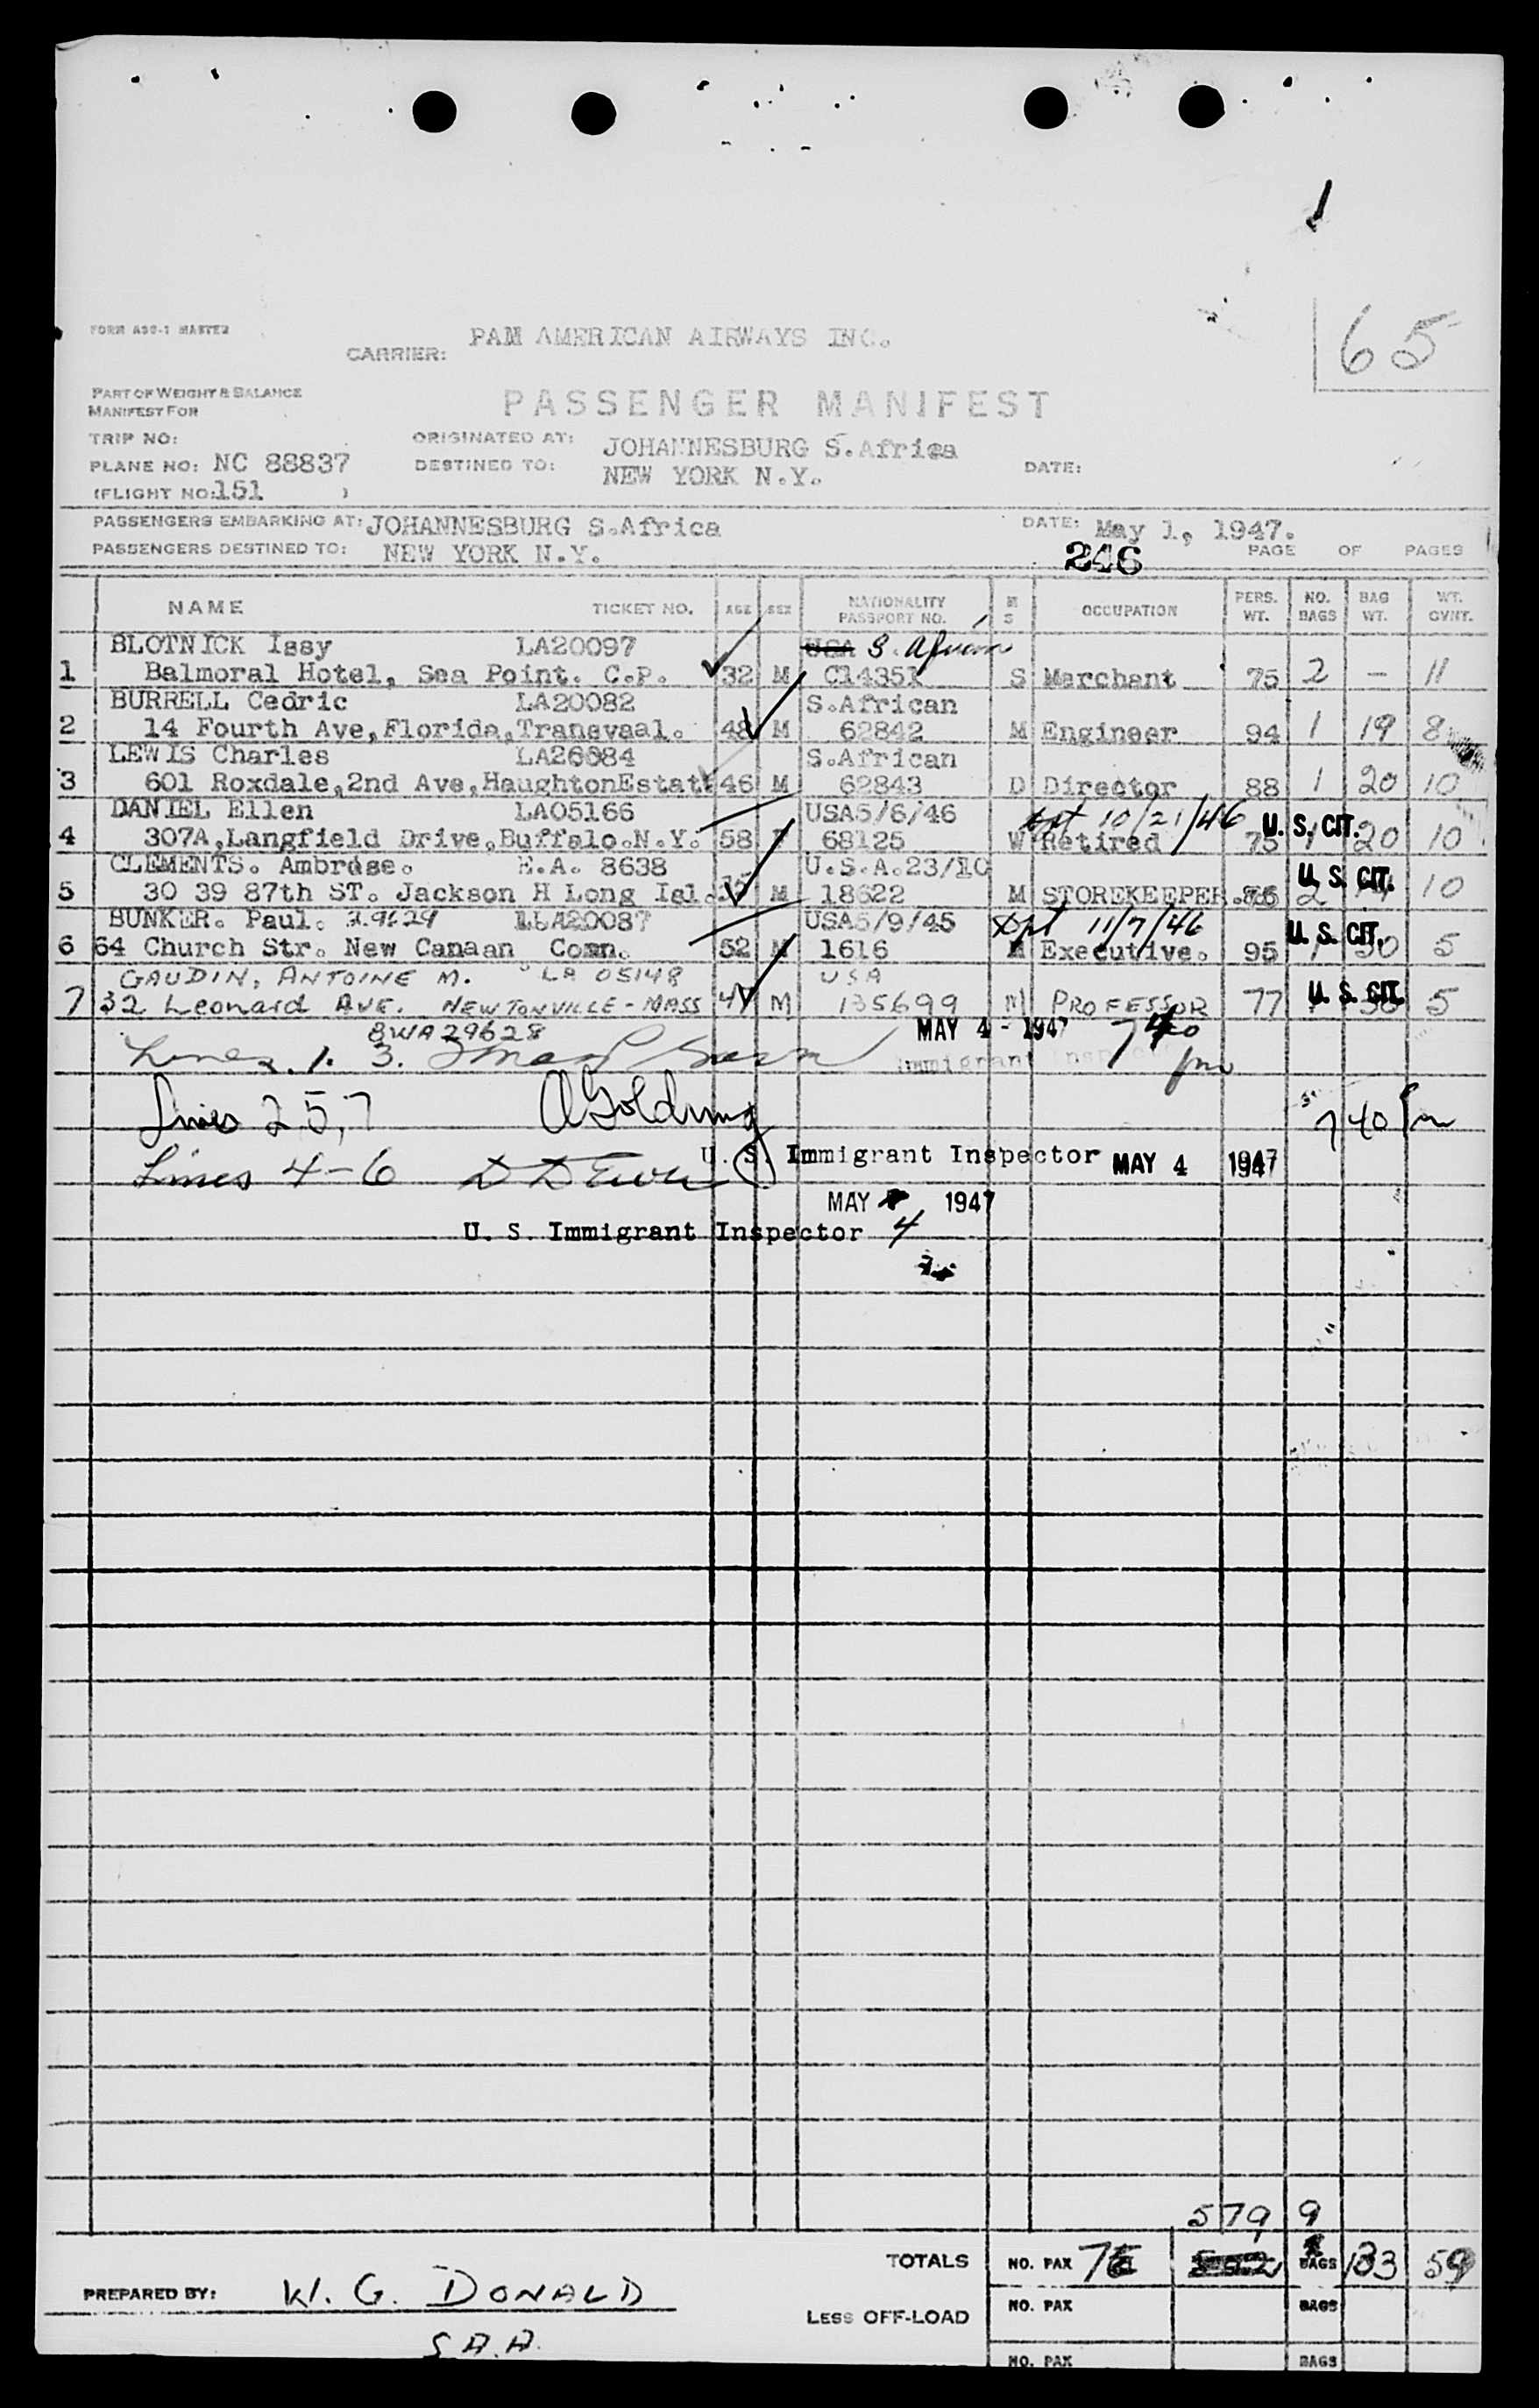 65
FORM ASS-1 MASTER
CARRIER: PAN AMERICAN AIRWAYS INC.
PART OF WEIGHT & BALANCE
MANIFEST FOR
PASSENGER MANIFEST
TRIP NO:
ORIGINATED AT: JOHANNESBURG S.Africa
PLANE NO: NC 88837
DESTINED TO: NEW YORK N.Y.
DATE:
(FLIGHT NO: 151 )
PASSENGERS EMBARKING AT: JOHANNESBURG S.Africa
DATE: May 1, 1947.
PASSENGERS DESTINED TO: NEW YORK N.Y.
246
PAGE OF PAGES
NAME TICKET NO. AGE SEX NATIONALITY PASSPORT NO. M S OCCUPATION PERS. WT. NO. BAGS BAG WT. WT. GVNT.
BLOTNICK Issy LA20097 USA S. African
1 Balmoral Hotel, Sea Point. C.P. 32 M C14351 S Merchant 75 2 - 11
BURRELL Cedric LA20082 S.African
2 14 Fourth Ave,Florida,Transvaal. 48 M 62842 M Engineer 94 1 19 8
LEWIS Charles LA26084 S.African
3 601 Roxdale,2nd Ave,HaughtonEstat 46 M 62843 D Director 88 1 20 10
DANIEL Ellen LA05166 USA5/6/46 dpt 10/21/46 U. S. CIT.
4 307A,Langfield Drive,Buffalo.N.Y. 58 F 68125 W Retired 75 1 20 10
CLEMENTS. Ambrose. E.A. 8638 U.S.A.23/10 U. S. CIT.
5 30 39 87th ST. Jackson H Long Isl. M 18622 M STOREKEEPER. 2 10
BUNKER. Paul. LA20087 USA5/9/45 dpt 11/7/46 U. S. CIT.
6 64 Church Str. New Canaan Conn. 52 M 1616 M Executive. 95 1 30 5
GAUDIN, ANTOINE M. LA 05148 USA U. S. CIT.
7 32 Leonard AVE. NEWTONVILLE - MASS 47 M 135699 M PROFESSOR 77 5
8WA29628
MAY 4 - 1947 7 40 pm
Lines 1. 3.
Immigrant Inspector
Lines 2 5, 7 A Goldring 7 40 pm
U. S. Immigrant Inspector MAY 4 1947
Lines 4-6
MAY 1947
U. S. Immigrant Inspector 4
579 9
TOTALS NO. PAX 7 BAGS 133 59
PREPARED BY: W. G. DONALD
LESS OFF-LOAD NO. PAX BAGS
S.A.A.
NO. PAX BAGS